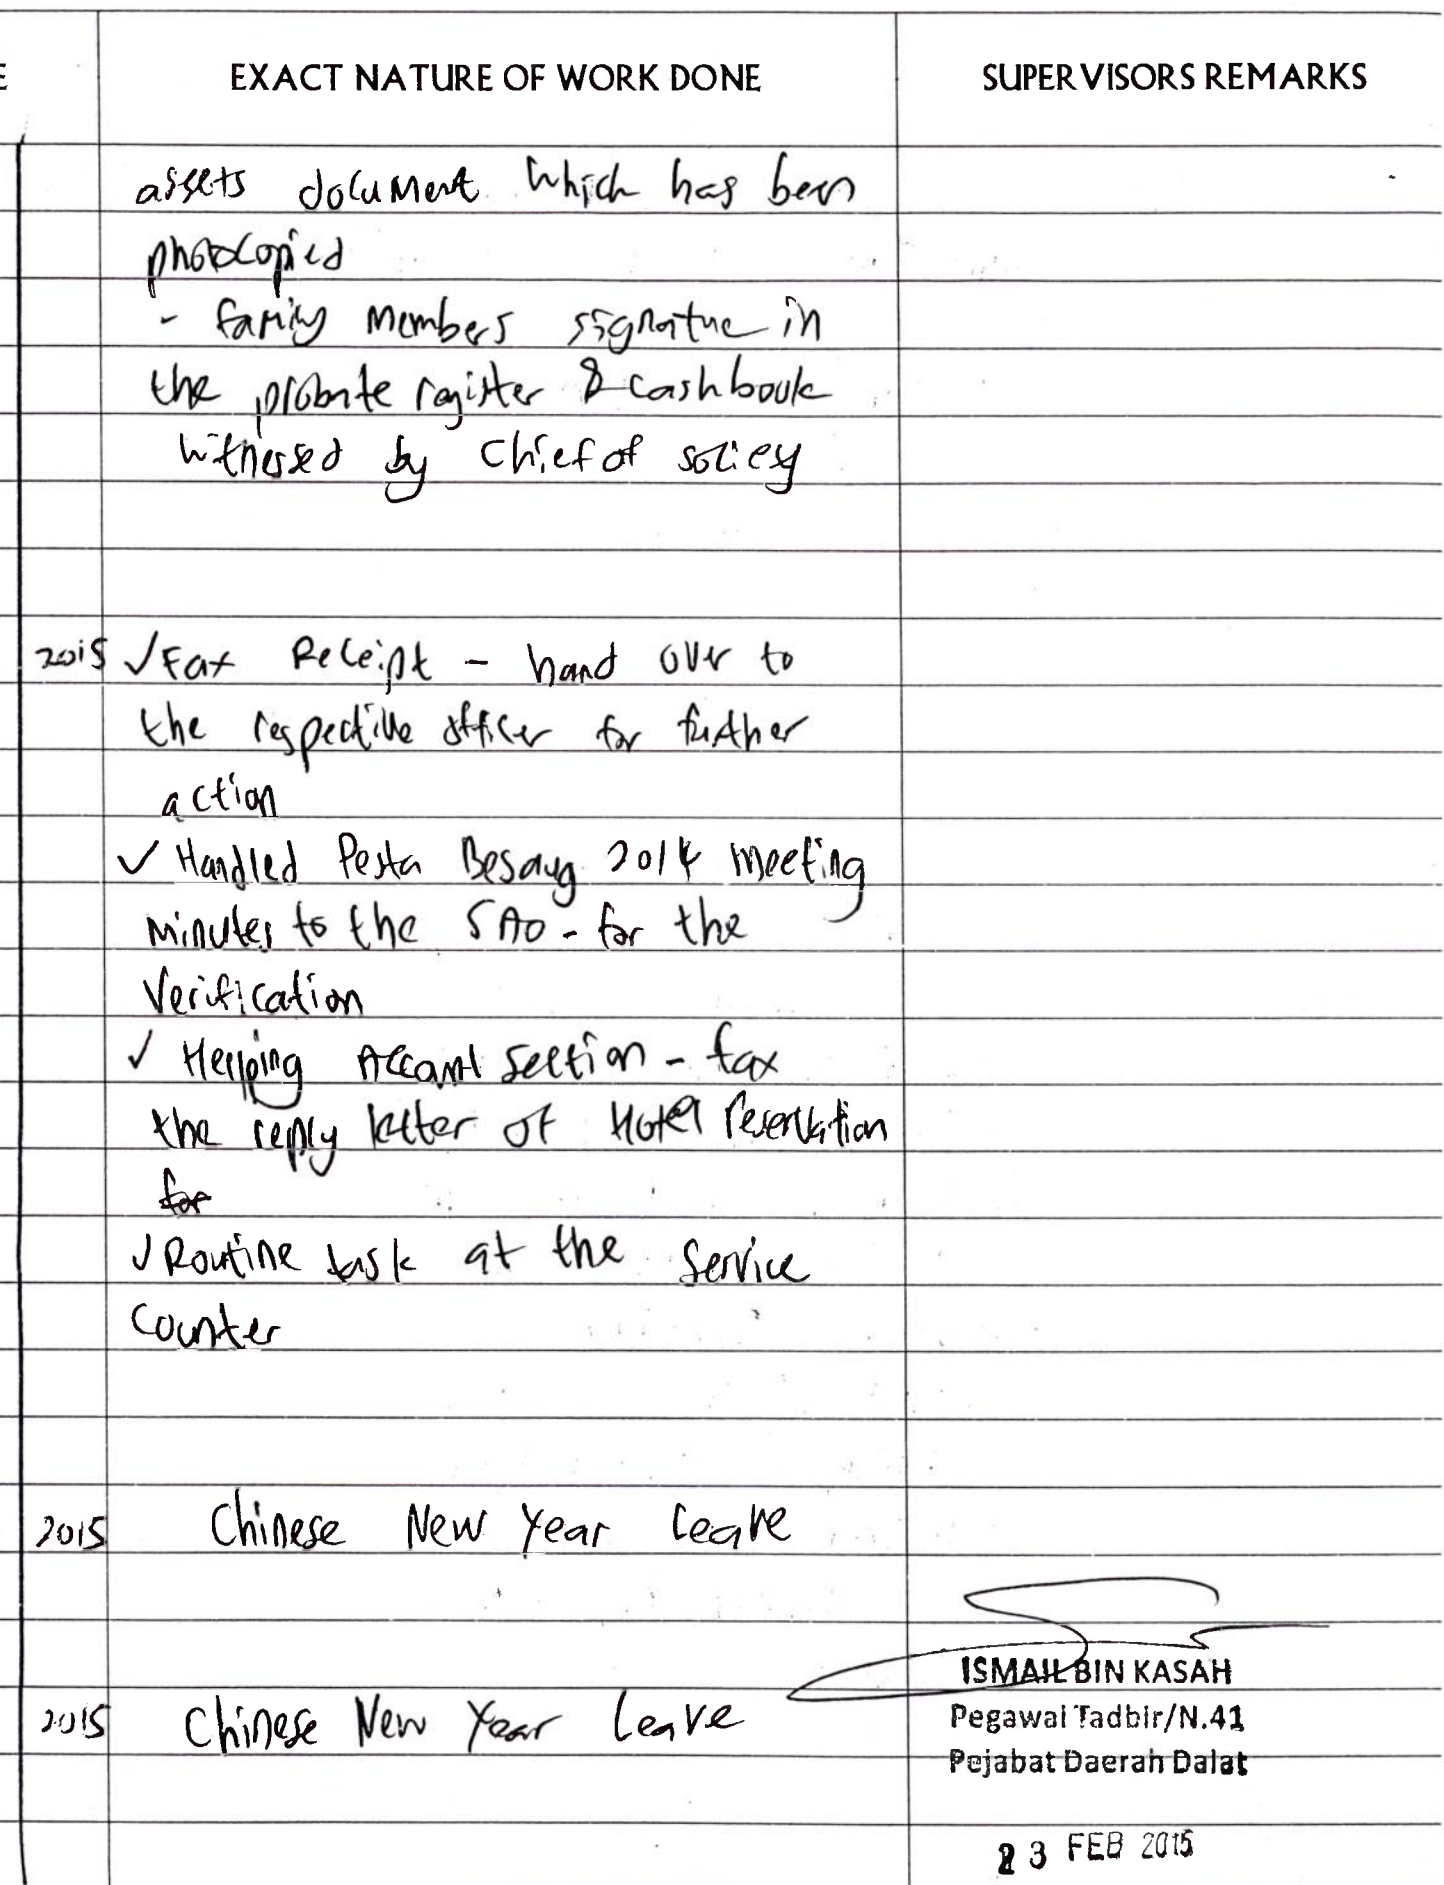 E EXACT NATURE OF WORK DONE SUPERVISORS REMARKS
assets document which has been
photocopied
- family members signatue in
the probate register & cashbook
witnessed by Chief of society
2015 ✓ Fax Receipt - hand over to
the respective officer for further
action
✓ Handled Pesta Besaug 2014 meeting
minutes to the SAO - for the
Verification
✓ Helping Account section - fax
the reply letter of Hotel reservation
for
✓ Routine task at the Service
Counter
2015 Chinese New Year Leave
ISMAIL BIN KASAH
2015 Chinese New Year Leave Pegawai Tadbir/N.41
Pejabat Daerah Dalat
23 FEB 2015